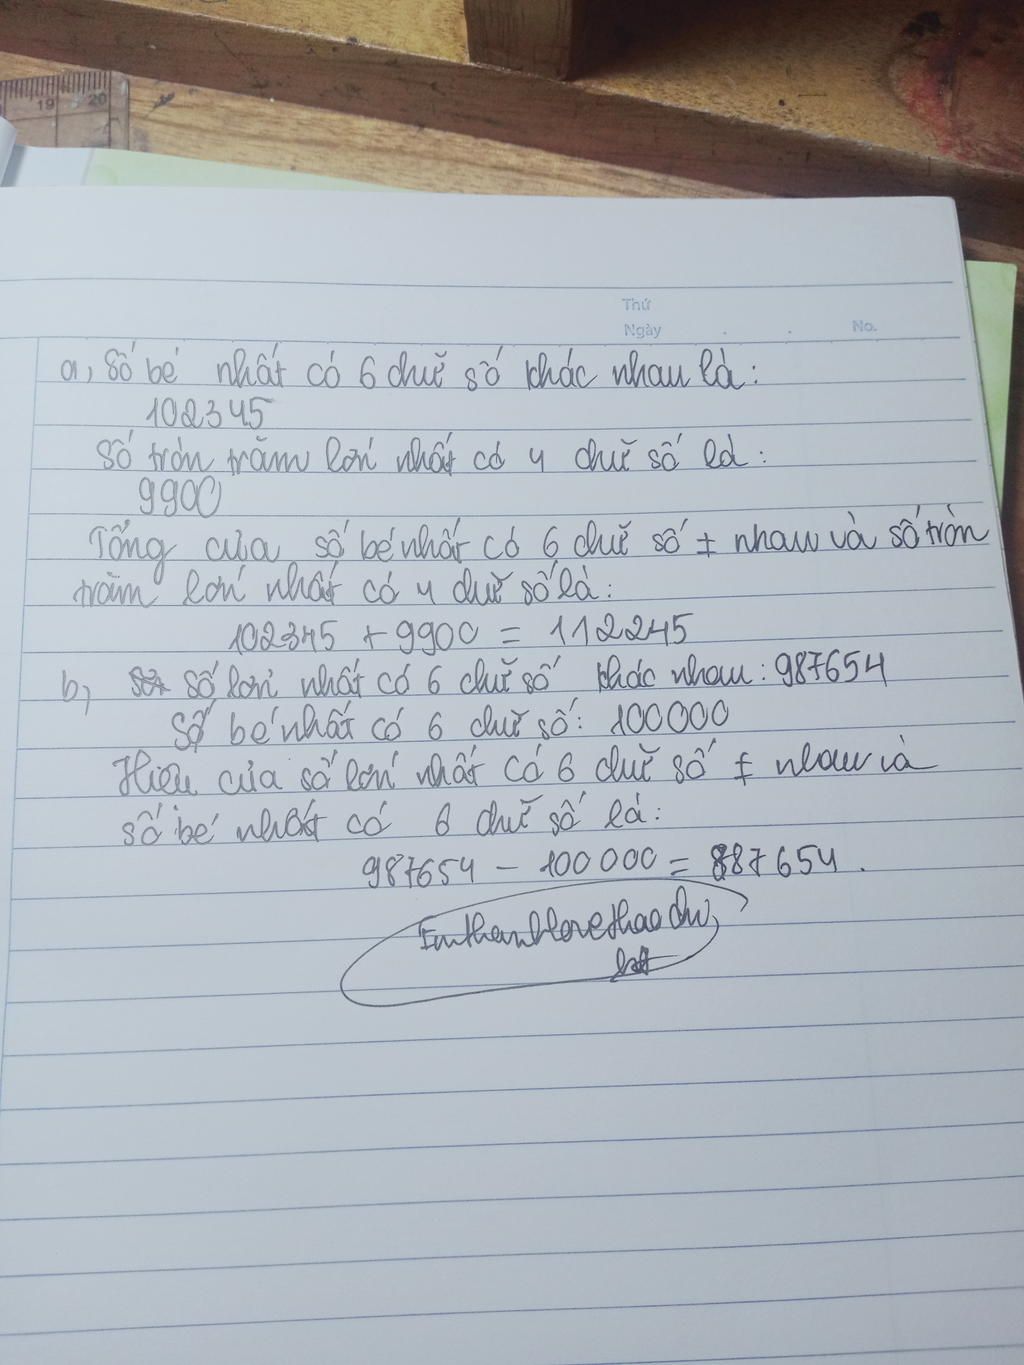 19 20
Thứ
Ngày . . No.
a, Số bé nhất có 6 chữ số khác nhau là:
102345
Số tròn trăm lớn nhất có 4 chữ số là:
9900
Tổng của số bé nhất có 6 chữ số ≠ nhau và số tròn
trăm lớn nhất có 4 chữ số là:
102345 + 9900 = 112245
b, số lớn nhất có 6 chữ số khác nhau: 987654
Số bé nhất có 6 chữ số: 100000
Hiệu của số lớn nhất có 6 chữ số ≠ nhau và
số bé nhất có 6 chữ số là:
987654 - 100000 = 887654.